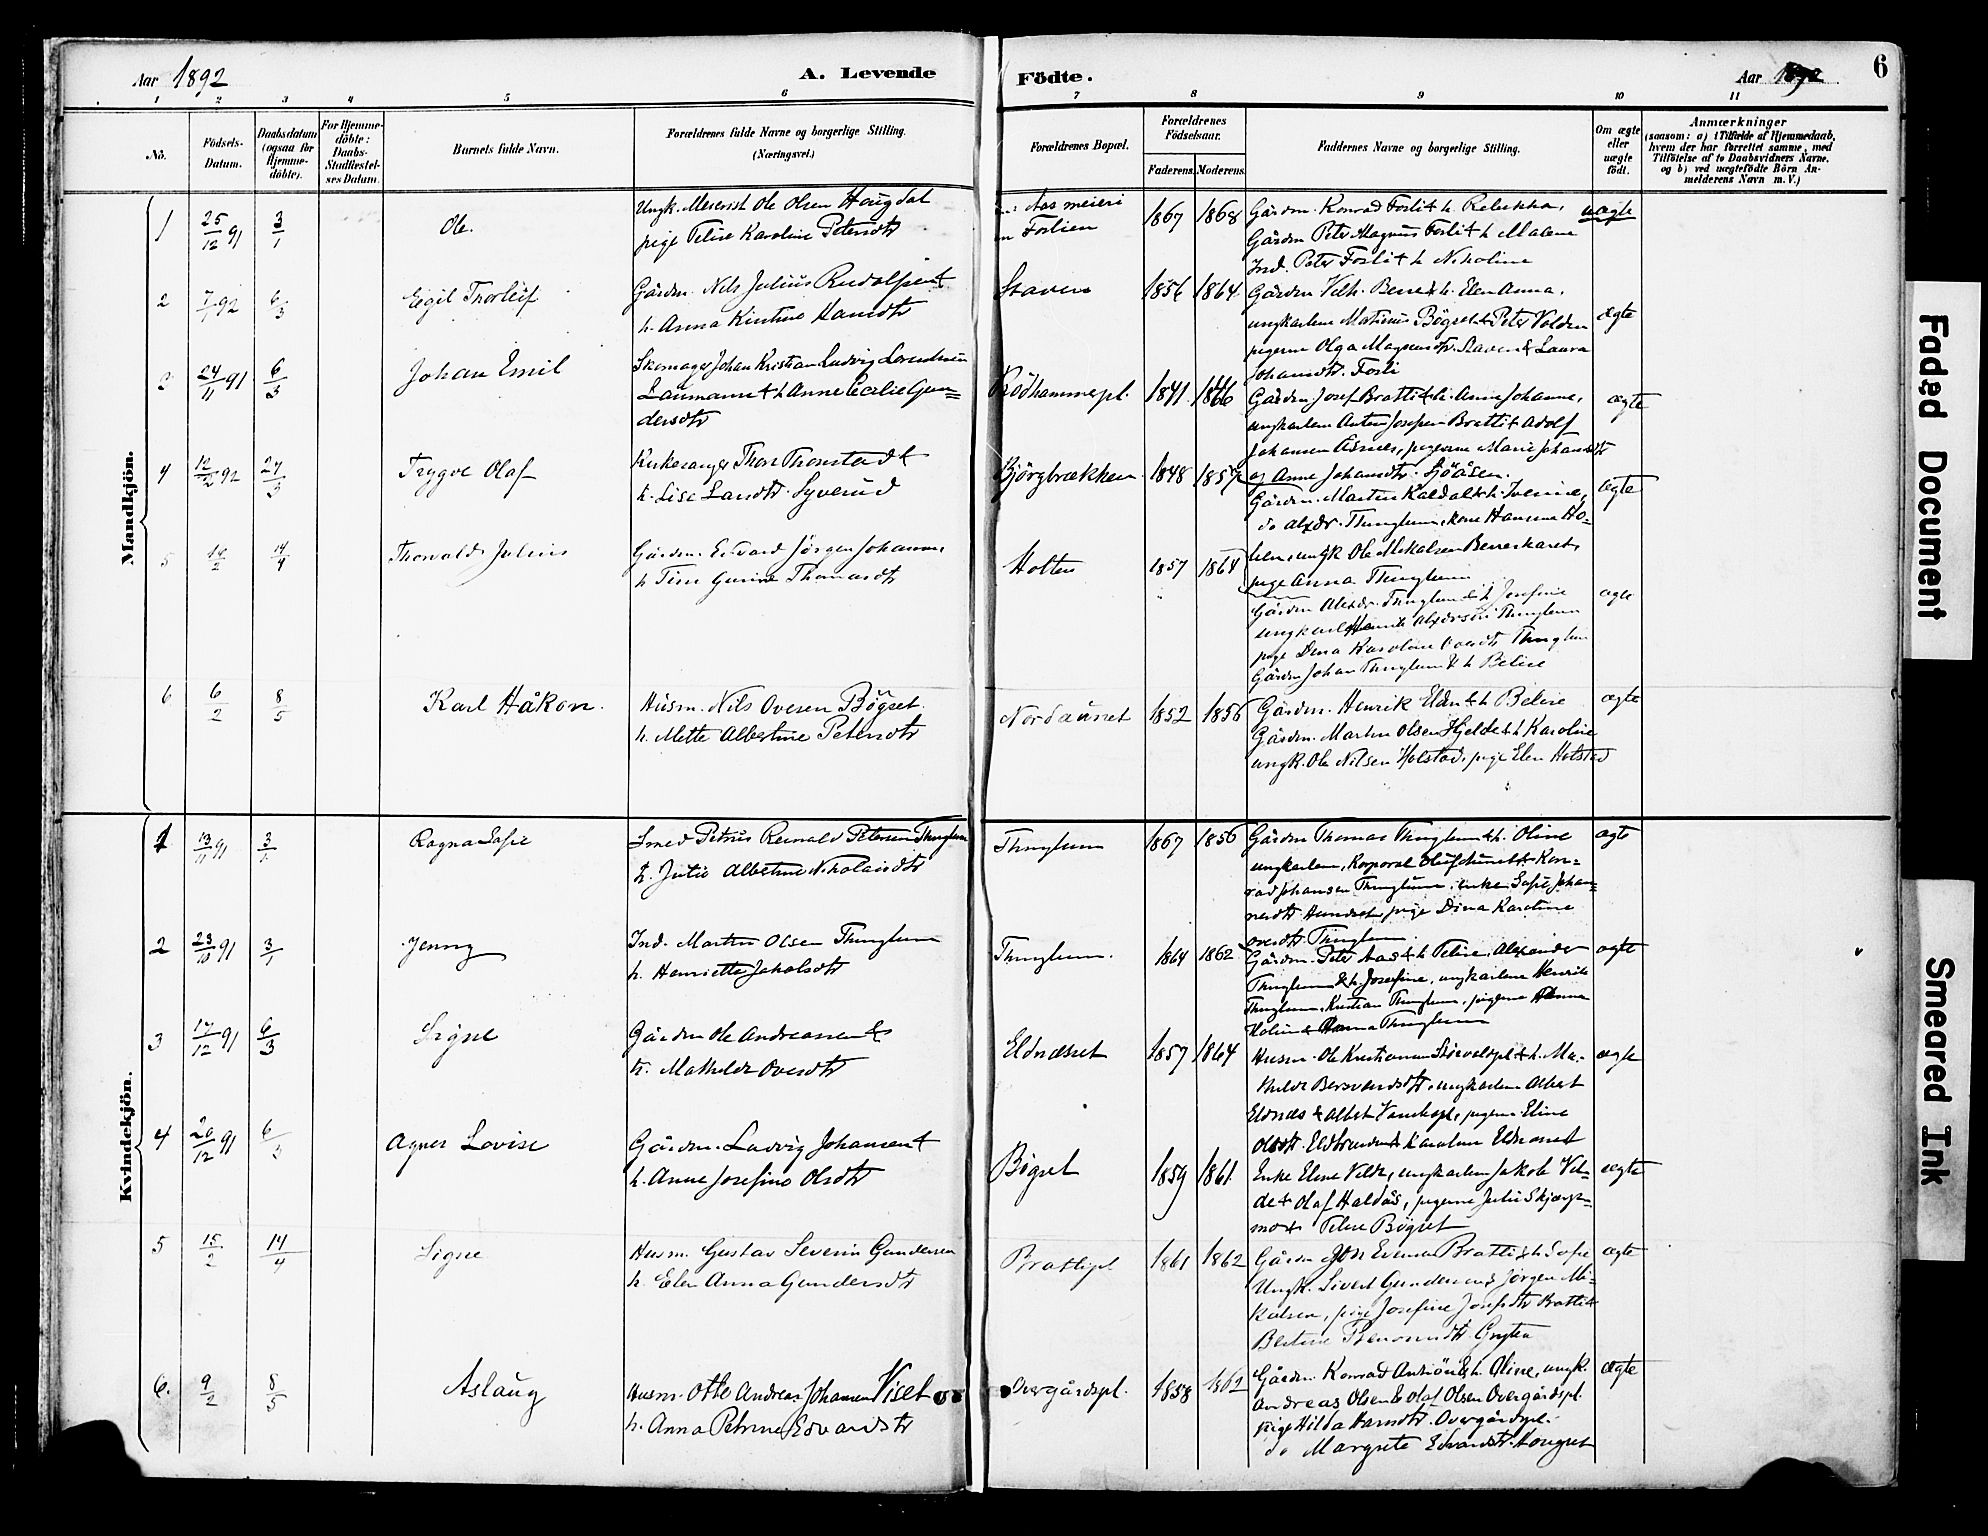 Aar 1892
A. Levende
Födte.
Aar 1892
6
1 2 3 4 5 6 7 8 9 10 11
No.
Födsels-
Datum.
Daabsdatum
(ogsaa for
Hjemme-
döbte).
For Hjemme-
döbte:
Daabs-
Stadfæstel-
ses Datum.
Barnets fulde Navn.
Forældrenes fulde Navne og borgerlige Stilling.
(Næringsvei.)
Forældrenes Bopæl.
Forældrenes
Födselsaar.
Faderens. Moderens.
Faddernes Navne og borgerlige Stilling.
Om ægte
eller
uægte
födt.
Anmærkninger
(saasom: a) i Tilfælde af Hjemmedaab,
hvem der har forrettet samme, med
Tilföielse af to Daabsvidners Navne.
og b) ved uægtefödte Börn An-
melderens Navn m. V.)
Mandkjön.
1 25/12 91 3/1 Ole.
Ungk. Meierist Ole Olsen Haugdal
pige Peline Karoline Petersdtr
Aas meieri
Foslien
1867 1868
Gårdm. Konrad Fosli & h. Rebekka,
Gårdm Peter Magnus Fosli & h Malene
Ind. Peter Fosli & h Nikoline
uægte
2 7/1 92 6/3 Eigil Thorleif
Gårdm. Nils Julius Rudolfsen &
h. Anna Kirstine Hansdtr
Staven
1856 1864
Gårdm Vilh. Berre & h. Elen Anna,
ungkarlene Matinus Bögset & Peter Volden
pigerne Olga Magnusdtr. Staven & Laura
Johansdtr. Fosli
ægte
3 24/11 91 6/3 Johan Emil
Skomager Johan Kristian Ludvig Lorentsen
Laumann & h Anne Cecilie Gun-
dersdtr
Rödhammerpl.
1841 1866
Gårdm. Josef Bratli & h. Anne Johanna,
ungkarlene Anton Josefsen Bratli & Adolf
Johansen Asnes, pigerne Marie Johansdtr
og Anne Johansdtr. Sjöåsen.
ægte
4 12/2 92 27/3 Trygve Olaf
Kirkesanger Thore Thonstad &
h. Lise Larsdtr Syverud
Bjørgbrækken
1848 1857
Gårdm. Martin Kaldal & h. Iverine,
do Alxdr. Thinglum, kone Hansine Ho-
lien, ungk Ole Mikalsen Berreskaret,
pige Anna Thinglum
ægte
5 14/2 14/4 Thorvald Julius
Gårdm. Edvard Jörgen Johansen,
h Tine Gurine Thomasdtr
Holten
1857 1864
Gårdm Alexdr. Thinglum & h Josefine
ungkarl Henrik Alxdersen Thinglum
pige Dina Karoline Ovesdtr Thinglum
Gårdm Johan Thinglum & h Beline
ægte
6 6/2 8/5 Karl Håkon.
Husm. Nils Ovesen Bögset
h. Mette Albertine Petersdtr
Nordaunet
1852 1856
Gårdm. Henrik Elden & h Beline
Gårdm. Martin Olsen Hjelde & h Karoline
ungk. Ole Nilsen Holstad, pige Elen Holstad
ægte
Kvindekjön.
1 13/11 91 3/1 Ragna Sofie
Smed Petrus Reinald Petersen Thinglum
h. Julie Albertine Nikolaisdtr
Thinglum
1867 1856
Gårdm Thomas Thinglum & h. Oline
ungkarlene, Korporal & Kon-
rad Johansen Thinglum, enke Sofie Johan-
nesdtr pige Dina Karoline
ovesdtr. Thinglum
ægte
2 23/10 91 3/1 Jenny
Ind. Martin Olsen Thinglum
h. Henriette Jakobsdtr
Thinglum.
1864 1862
Gårdm. Peter Aas & h Peline, Alexander
Thinglum & h. Josefine, ungkarlene Henrik
Thinglum, Kristian Thinglum, pigerne Hanna
Holien & Hanna Thinglum
ægte
3 17/12 91 6/3 Signe
Gårdm Ole Andreassen &
h. Mathilde Ovesdtr
Eldnæsset
1857 1864
Husm. Ole Kristiansen & h. Ma-
thilde Bersvendsdtr. ungkarlene Albert
Eldnæs & Albert pigerne Eline
Olsdtr. & Karoline Eldnæsset
ægte
4 20/12 91 6/3 Agnes Lovise
Gårdm. Ludvig Johansen &
h. Anne Josefine Olsdtr
Bögset
1859 1861
Enke Elene Velde, ungkarlene Jakob Vel-
de & Olaf Haldås, pigerne Julie Skjærp-
mo & Peline Bögset
ægte
5 15/2 14/4 Signe
Husm. Gustav Severin Gundersen
h. Elen Anna Gundersdtr
Bratlipl
1861 1862
Gårdm Jon Evensen Bratli & h Sofie
Ungk. Sivert Gundersen & Jörgen Mi-
kalsen, pige Josefine Josefsdtr Bratli &
Bertine
ægte
6. 9/2 8/5 Aslaug
Husm. Otto Andreas Johansen Viset
h. Anna Petrine Edvardsdtr
Overgårdspl.
1858 1862
Gårdm. Konrad & h. Oline, ungk.
Andreas Olsen & Olaf Olsen Overgårdspl.
pige Hilda Hansdtr. Overgårdspl.
do Margrete Edvardsdtr.
ægte
Faded Document
Smeared Ink